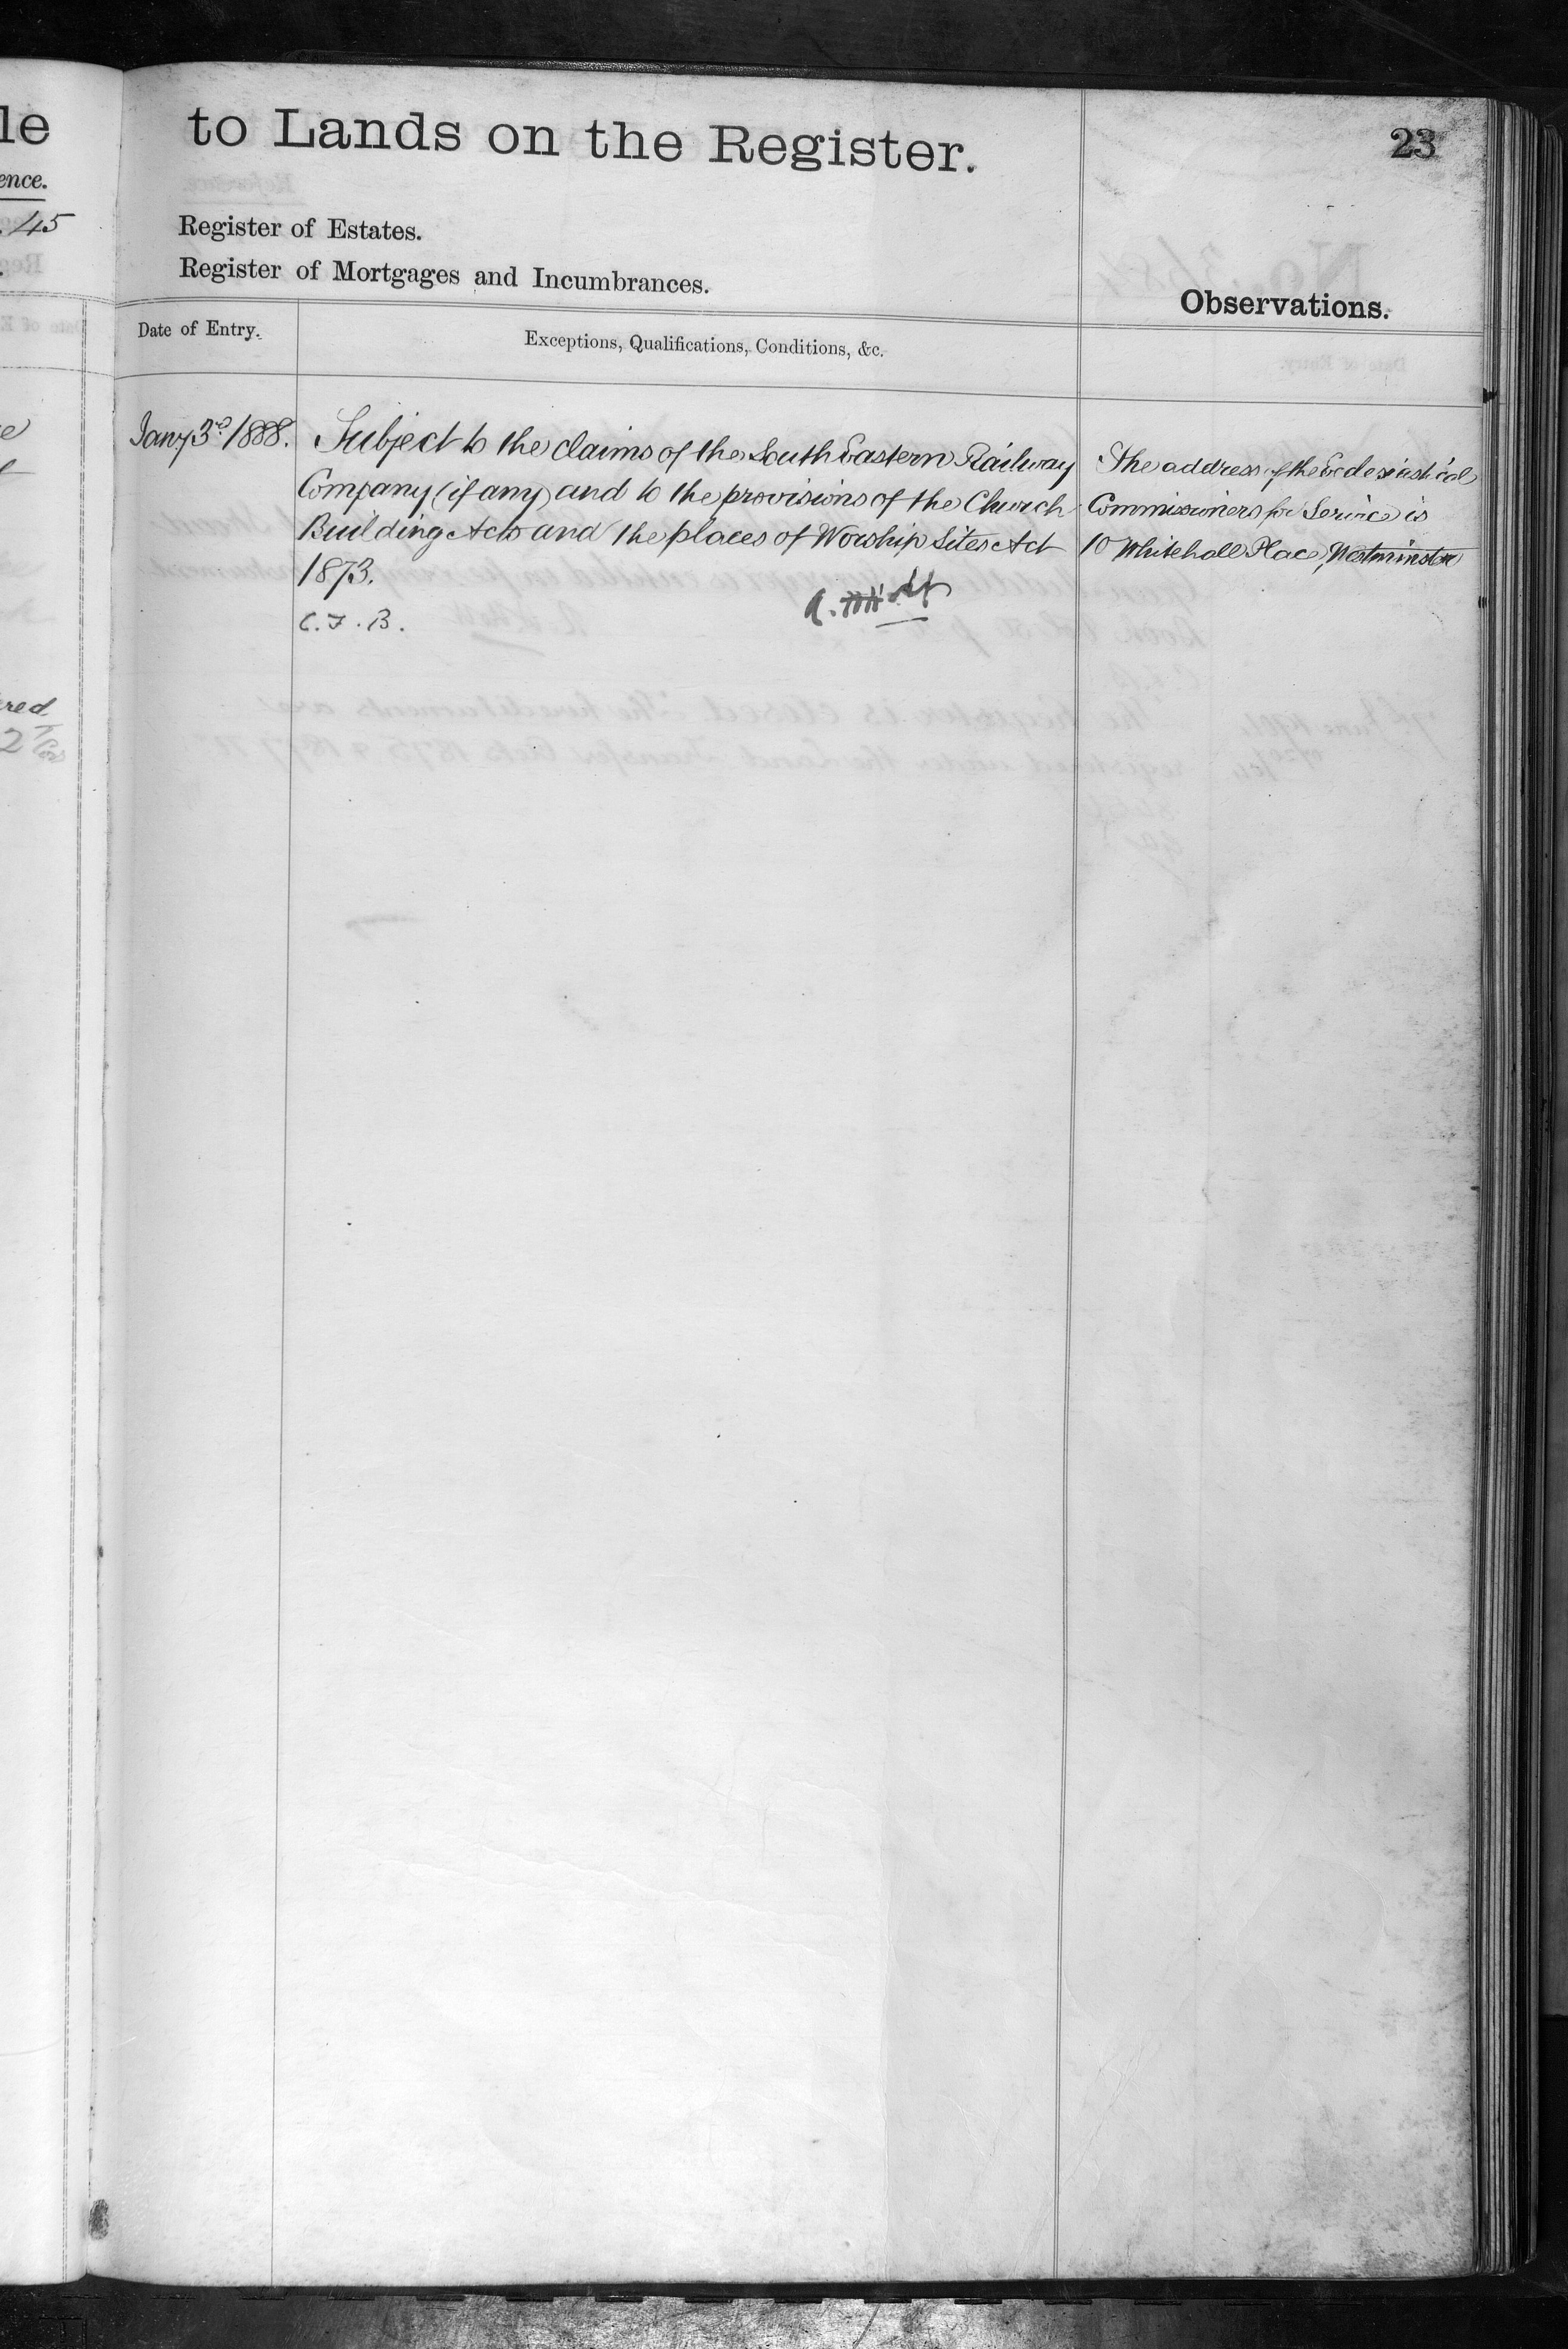 le
ence.
45
red
2
to Lands on the Register.
23
Register of Estates.
Register of Mortgages and Incumbrances.
Observations.
Date of Entry.
Exceptions, Qualifications, Conditions, &c.
Jany 3rd 1888.
Subject to the claims of the South Eastern Railway
Company (if any) and to the provisions of the Church
Building Acts and the places of Worship Sites Act
1873.
C. F. B.
The address of the Ecclesiastical
Commissioners for Service is
10 Whitehall Place, Westminster